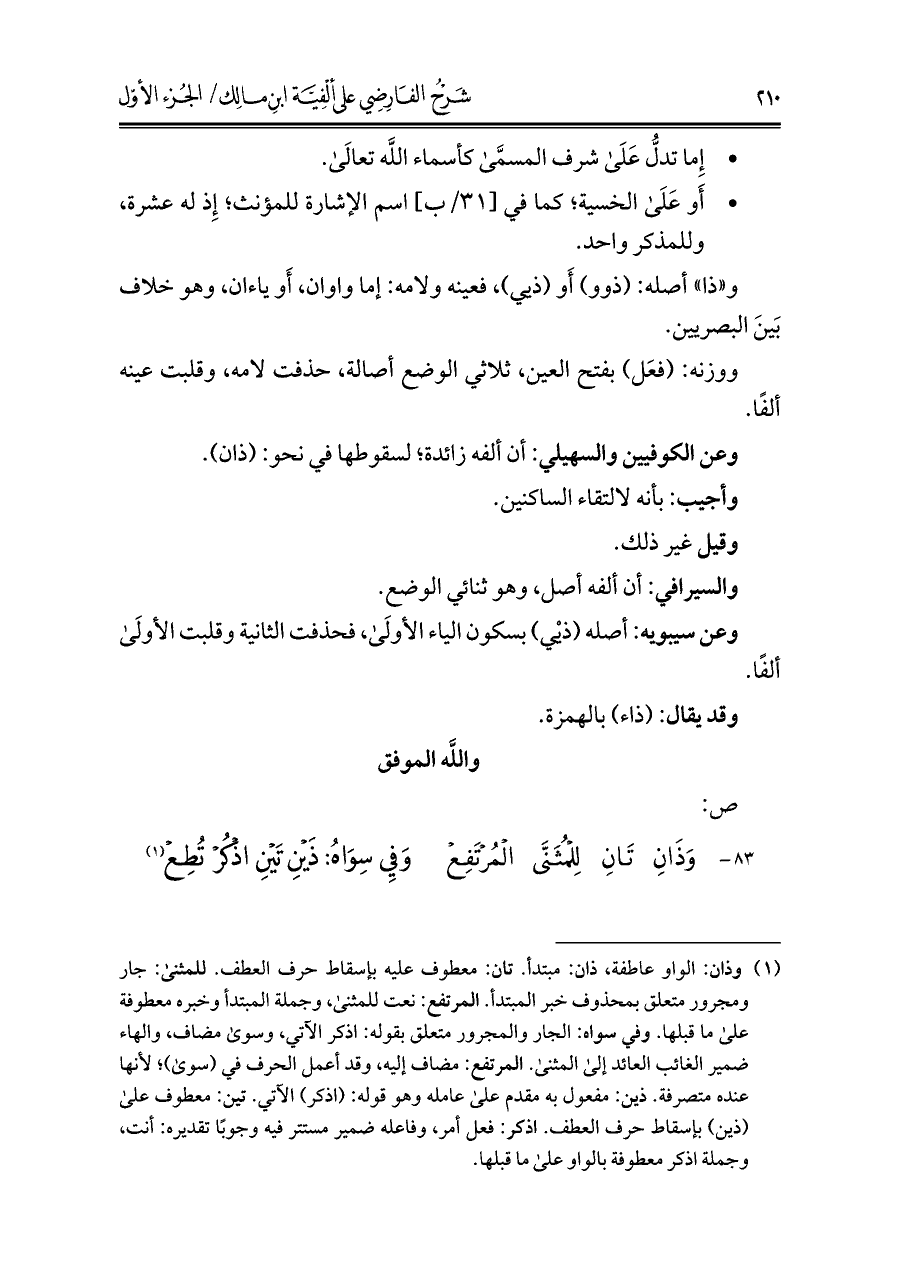 ٢١٠ شَرْحُ الفَارِضِي على ألفِيَّة ابنِ مالِك/ الجُزء الأوّل
• إِما تدلُّ عَلَىٰ شرف المسمَّىٰ كأسماء اللَّه تعالَىٰ.
• أَو عَلَىٰ الخسية؛ كما في [٣١/ ب] اسم الإشارة للمؤنث؛ إِذ له عشرة،
وللمذكر واحد.
و«ذا» أصله: (ذوو) أَو (ذيي)، فعينه ولامه: إما واوان، أَو ياءان، وهو خلاف
بَينَ البصريين.
ووزنه: (فعَل) بفتح العين، ثلاثي الوضع أصالة، حذفت لامه، وقلبت عينه
ألفًا.
وعن الكوفيين والسهيلي: أن ألفه زائدة؛ لسقوطها في نحو: (ذان).
وأجيب: بأنه لالتقاء الساكنين.
وقيل غير ذلك.
والسيرافي: أن ألفه أصل، وهو ثنائي الوضع.
وعن سيبويه: أصله (ذيْي) بسكون الياء الأولَىٰ، فحذفت الثانية وقلبت الأولَىٰ
ألفًا.
وقد يقال: (ذاء) بالهمزة.
واللَّه الموفق
ص:
٨٣- وَذَانِ تَانِ لِلْمُثَنَّى المُرْتَفِعْ وَفِي سِوَاهُ: ذَيْنِ تَيْنِ اذْكُرْ تُطِعْ(١)
(١) وذان: الواو عاطفة، ذان: مبتدأ. تان: معطوف عليه بإسقاط حرف العطف. للمثنىٰ: جار
ومجرور متعلق بمحذوف خبر المبتدأ. المرتفع: نعت للمثنىٰ، وجملة المبتدأ وخبره معطوفة
علىٰ ما قبلها. وفي سواه: الجار والمجرور متعلق بقوله: اذكر الآتي، وسوىٰ مضاف، والهاء
ضمير الغائب العائد إلىٰ المثنىٰ. المرتفع: مضاف إليه، وقد أعمل الحرف في (سوىٰ)؛ لأنها
عنده متصرفة. ذين: مفعول به مقدم علىٰ عامله وهو قوله: (اذكر) الآتي. تين: معطوف علىٰ
(ذين) بإسقاط حرف العطف. اذكر: فعل أمر، وفاعله ضمير مستتر فيه وجوبًا تقديره: أنت،
وجملة اذكر معطوفة بالواو علىٰ ما قبلها.